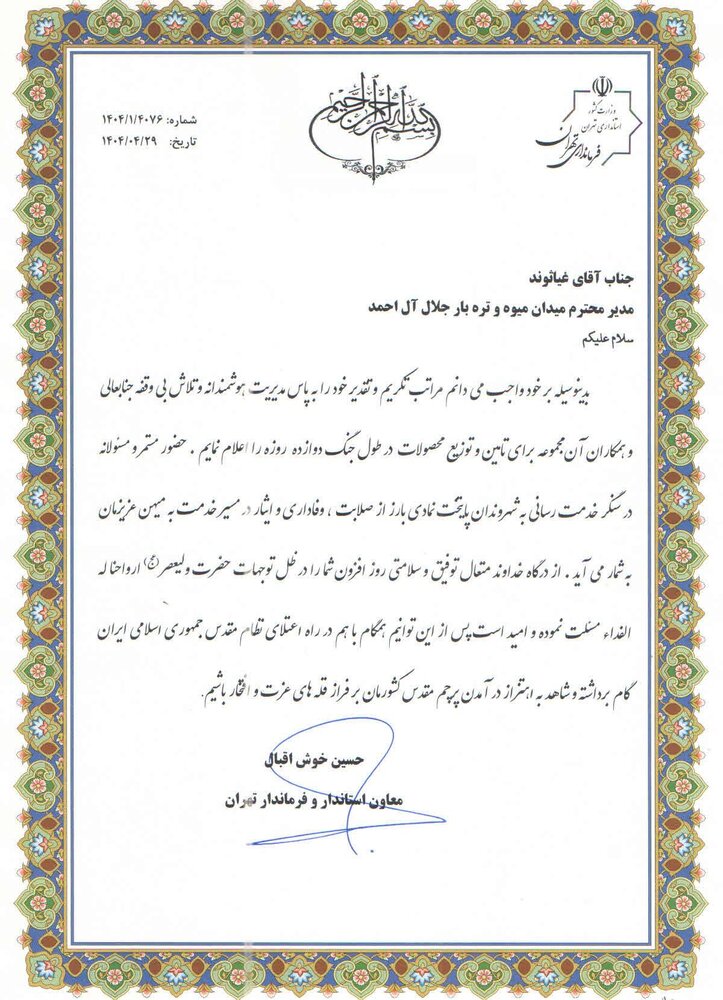 بسم الله الرحمن الرحیم
وزارت کشور
استانداری تهران
فرمانداری تهران
شماره: ۱۴۰۴/۱/۴۰۷۶
تاریخ: ۱۴۰۴/۰۴/۲۹
جناب آقای غیاثوند
مدیر محترم میدان میوه و تره بار جلال آل احمد
سلام علیکم
بدینوسیله بر خود واجب می دانم مراتب تکریم و تقدیر خود را به پاس مدیریت هوشمندانه و تلاش بی وقفه جنابعالی
و همکاران آن مجموعه برای تامین و توزیع محصولات در طول جنگ دوازده روزه را اعلام نمایم . حضور مستمر و مسئولانه
در سنگر خدمت رسانی به شهروندان پایتخت نمادی بارز از صلابت ، وفاداری و ایثار در مسیر خدمت به میهن عزیزمان
به شمار می آید . از درگاه خداوند متعال توفیق و سلامتی روز افزون شما را در ظل توجهات حضرت ولیعصر (عج) ارواحنا له
الفداء مسئلت نموده و امید است پس از این توانیم همگام با هم در راه اعتلای نظام مقدس جمهوری اسلامی ایران
گام برداشته و شاهد به اهتزاز در آمدن پرچم مقدس کشورمان بر فراز قله های عزت و افتخار باشیم.
حسین خوش اقبال
معاون استاندار و فرماندار تهران